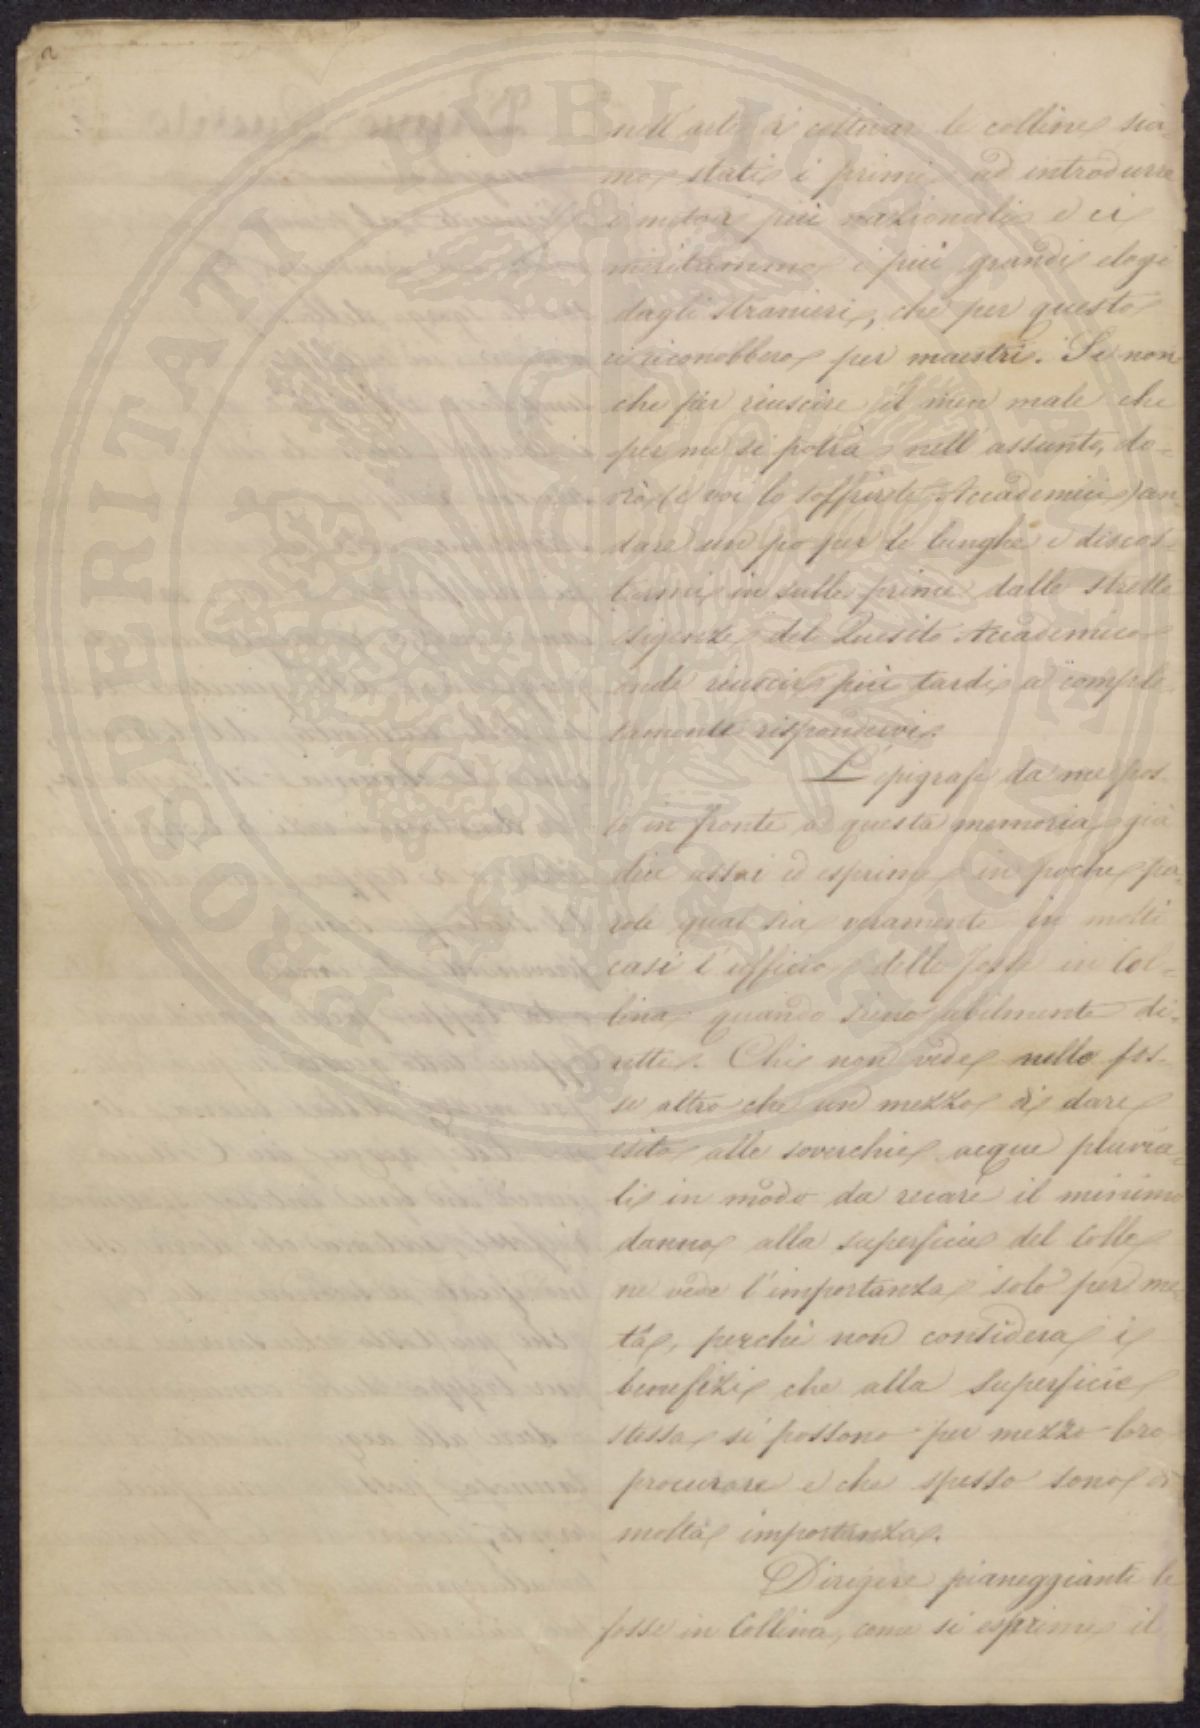 2
PROSPERITATI PVBLICAE AVGENDAE
nell'arte di coltivar le colline sia-
mo stati i primi ad introdurre
i metodi più razionali e ci
meritammo i più grandi elogi
dagli stranieri, che per questo
ci riconobbero per maestri. Se non
che per riuscire il men male che
per me si potrà nell'assunto, do-
vrò (e voi lo soffrirete Accademici) an
dare un po per le lunghe e discos-
tarmi in sulle prime dalle strette
esigenze del Quesito Accademico
onde riuscire più tardi a comple
tamente rispondervi.
L'epigrafe da me pos
to in fronte a questa memoria già
dice assai ed esprime in poche pa-
role qual sia veramente in molti
casi l'ufficio delle fosse in Col-
lina quando sieno abilmente di-
rette. Chi non vede nelle fos-
se altro che un mezzo di dare
esito alle soverchie acque pluvia-
li in modo da recare il minimo
danno alla superficie del Colle
ne vede l'importanza solo per me
tà, perchè non considera i
benefizi che alla superficie
stessa si possono per mezzo loro
procurare e che spesso sono di
molta importanza.
Dirigere pianeggianti le
fosse in Collina, come si esprime il